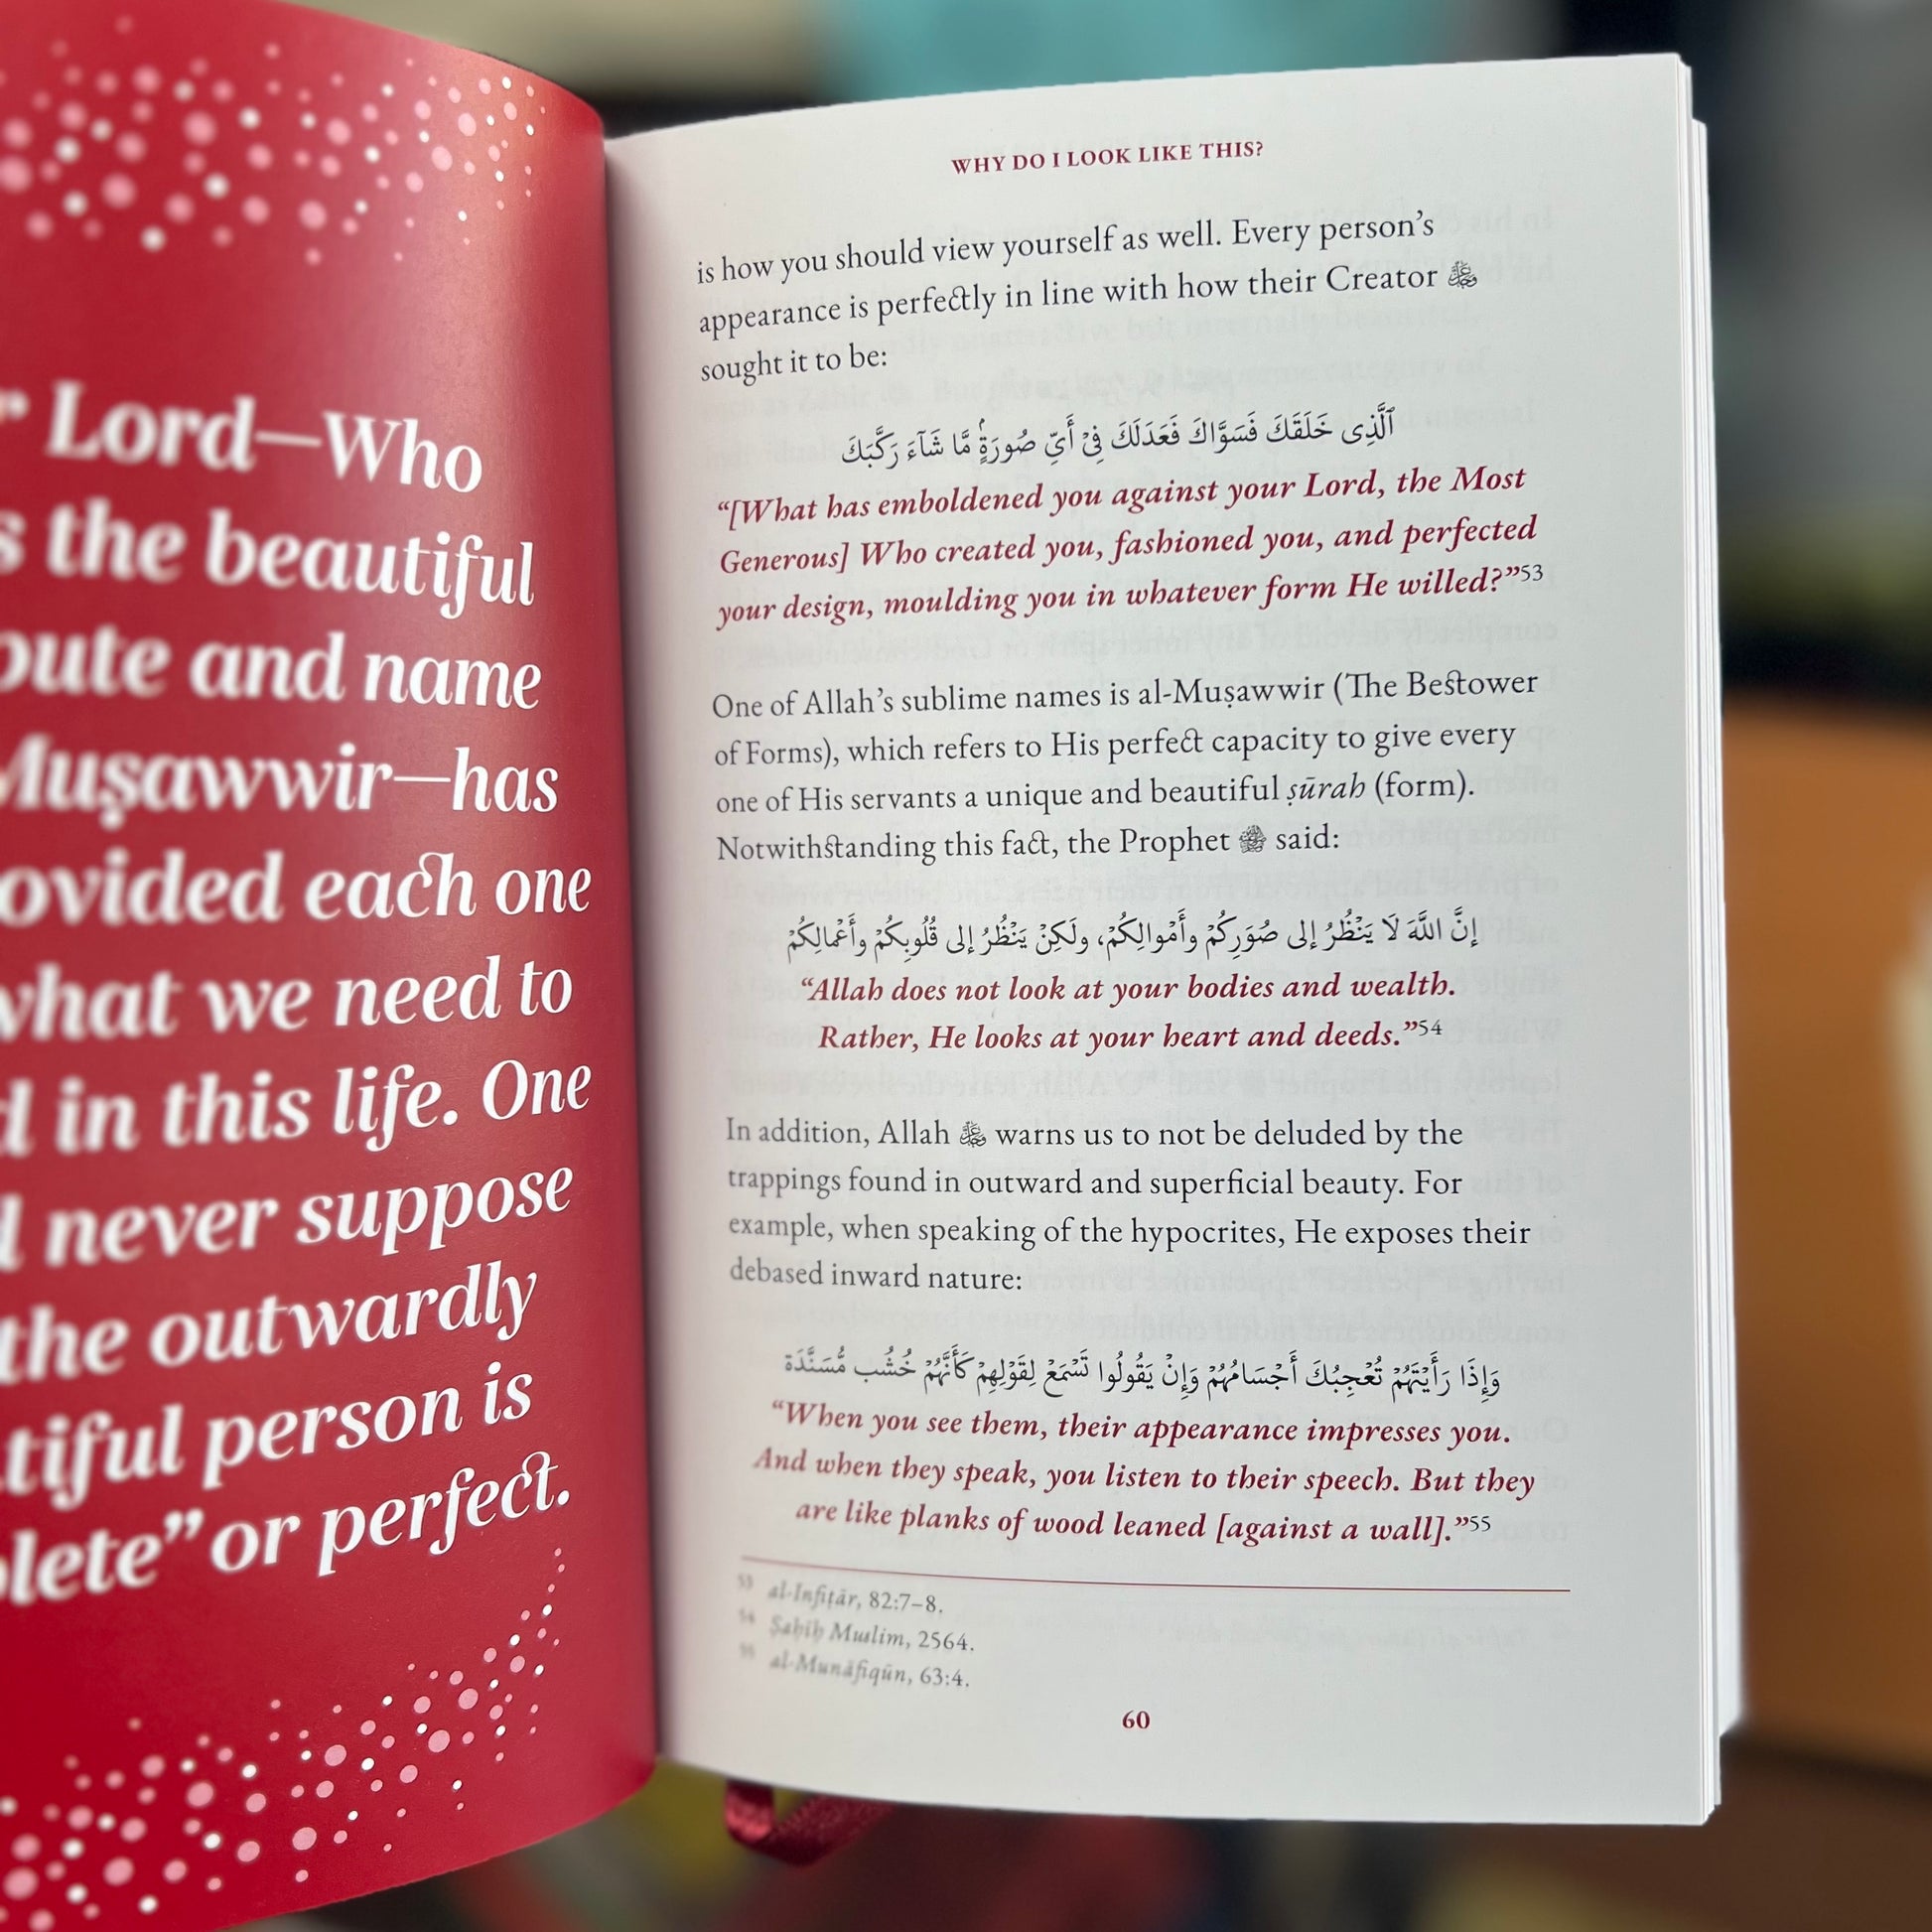 Lord—Who
the beautiful
and name
Muṣawwir—has
each one
what we need to
in this life. One
never suppose
the outwardly
person is
or perfect.
WHY DO I LOOK LIKE THIS?
is how you should view yourself as well. Every person's
appearance is perfectly in line with how their Creator ﷻ
sought it to be:
ٱلَّذِى خَلَقَكَ فَسَوَّاكَ فَعَدَلَكَ فِىٓ أَىِّ صُورَةٍ مَّا شَآءَ رَكَّبَكَ
“[What has emboldened you against your Lord, the Most
Generous] Who created you, fashioned you, and perfected
your design, moulding you in whatever form He willed?”53
One of Allah’s sublime names is al-Muṣawwir (The Bestower
of Forms), which refers to His perfect capacity to give every
one of His servants a unique and beautiful ṣūrah (form).
Notwithstanding this fact, the Prophet ﷺ said:
إنَّ اللَّهَ لَا يَنْظُرُ إلى صُوَرِكُمْ وأَمْوالِكُمْ، ولَكِنْ يَنْظُرُ إلى قُلُوبِكُمْ وأَعْمالِكُمْ
“Allah does not look at your bodies and wealth.
Rather, He looks at your heart and deeds.”54
In addition, Allah ﷻ warns us to not be deluded by the
trappings found in outward and superficial beauty. For
example, when speaking of the hypocrites, He exposes their
debased inward nature:
وَإِذَا رَأَيْتَهُمْ تُعْجِبُكَ أَجْسَامُهُمْ وَإِنْ يَقُولُوا تَسْمَعْ لِقَوْلِهِمْ كَأَنَّهُمْ خُشُب مُّسَنَّدَة
“When you see them, their appearance impresses you.
And when they speak, you listen to their speech. But they
are like planks of wood leaned [against a wall].”55
53 al-Infiṭār, 82:7–8.
54 Ṣaḥīḥ Muslim, 2564.
55 al-Munāfiqūn, 63:4.
60